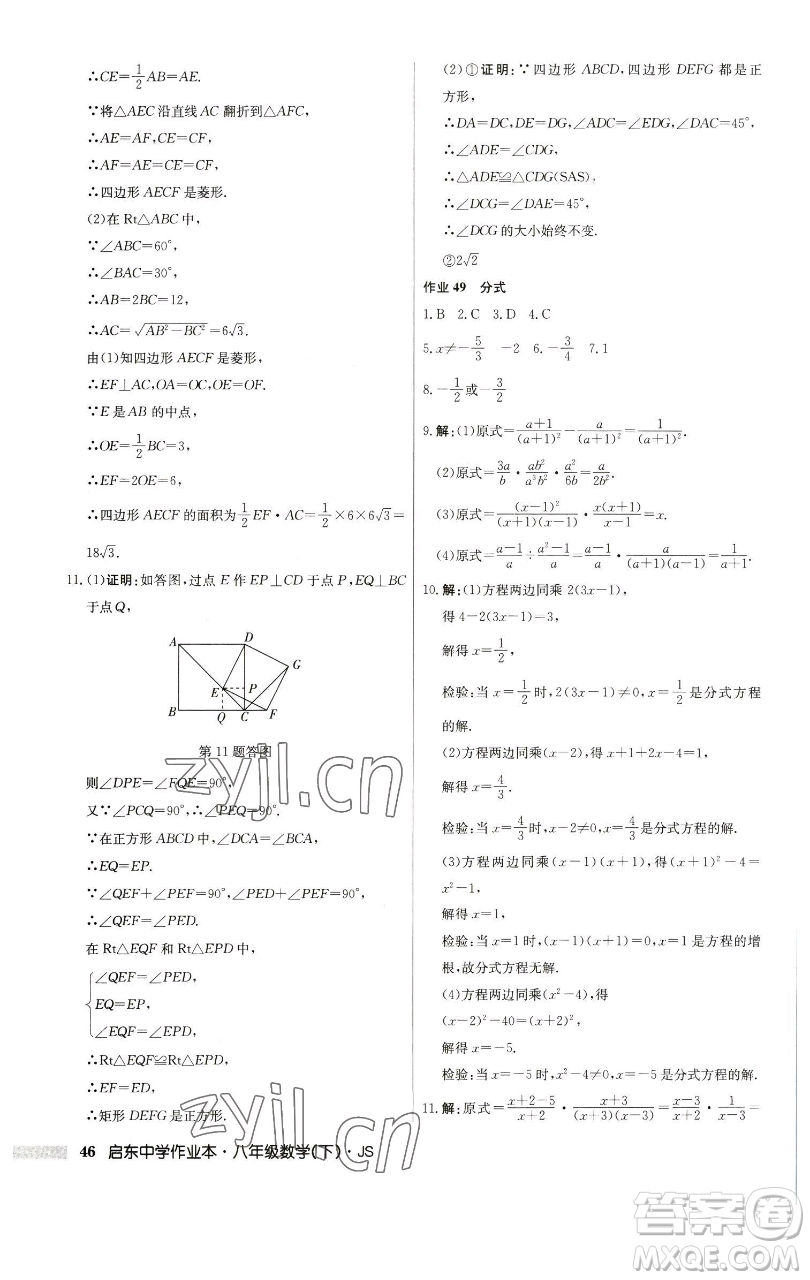 ∴CE=1/2AB=AE.
∵将△AEC沿直线AC翻折到△AFC,
∴AE=AF,CE=CF,
∴AF=AE=CE=CF,
∴四边形AECF是菱形.
(2)在Rt△ABC中,
∵∠ABC=60°,
∴∠BAC=30°,
∴AB=2BC=12,
∴AC=√(AB²-BC²)=6√3.
由(1)知四边形AECF是菱形,
∴EF⊥AC,OA=OC,OE=OF.
∵E是AB的中点,
∴OE=1/2BC=3,
∴EF=2OE=6,
∴四边形AECF的面积为1/2EF·AC=1/2×6×6√3=
18√3.
11.(1)证明:如答图,过点E作EP⊥CD于点P,EQ⊥BC
于点Q,
A D
G
E P
B Q C F
第11题答图
则∠DPE=∠FQE=90°,
又∵∠PCQ=90°,∴∠PEQ=90°.
∵在正方形ABCD中,∠DCA=∠BCA,
∴EQ=EP.
∵∠QEF+∠PEF=90°,∠PED+∠PEF=90°,
∴∠QEF=∠PED.
在Rt△EQF和Rt△EPD中,
{∠QEF=∠PED,
EQ=EP,
∠EQF=∠EPD,
∴Rt△EQF≌Rt△EPD,
∴EF=ED,
∴矩形DEFG是正方形.
(2)①证明:∵四边形ABCD,四边形DEFG都是正
方形,
∴DA=DC,DE=DG,∠ADC=∠EDG,∠DAC=45°,
∴∠ADE=∠CDG,
∴△ADE≌△CDG(SAS),
∴∠DCG=∠DAE=45°,
∴∠DCG的大小始终不变.
②2√2
作业49 分式
1.B 2.C 3.D 4.C
5.x≠-5/3 -2 6.-3/4 7.1
8.-1/2或-3/2
9.解:(1)原式=(a+1)/(a+1)²-a/(a+1)²=1/(a+1)².
(2)原式=3a/b·ab²/a³b²·a²/6b=a/2b².
(3)原式=(x-1)²/(x+1)(x-1)·x(x+1)/(x-1)=x.
(4)原式=(a-1)/a÷(a-1)²/a=(a-1)/a·a/(a-1)²=1/(a-1).
10.解:(1)方程两边同乘2(3x-1),
得4-2(3x-1)=3,
解得x=1/2,
检验:当x=1/2时,2(3x-1)≠0,x=1/2是分式方程
的解.
(2)方程两边同乘(x-2),得x+1+2x-4=1,
解得x=4/3.
检验:当x=4/3时,x-2≠0,x=4/3是分式方程的解.
(3)方程两边同乘(x-1)(x+1),得(x+1)²-4=
x²-1,
解得x=1,
检验:当x=1时,(x-1)(x+1)=0,x=1是方程的增
根,故分式方程无解.
(4)方程两边同乘(x²-4),得
(x-2)²-40=(x+2)²,
解得x=-5.
检验:当x=-5时,x²-4≠0,x=-5是分式方程的解.
11.解:原式=(x+2-5)/(x+2)·(x+3)²/(x+3)(x-3)=(x-3)/(x+2)·(x+3)/(x-3)=
46 启东中学作业本·八年级数学(下)·JS
zyjl.cn
zyjl.cn
答案圈
MXQE.COM